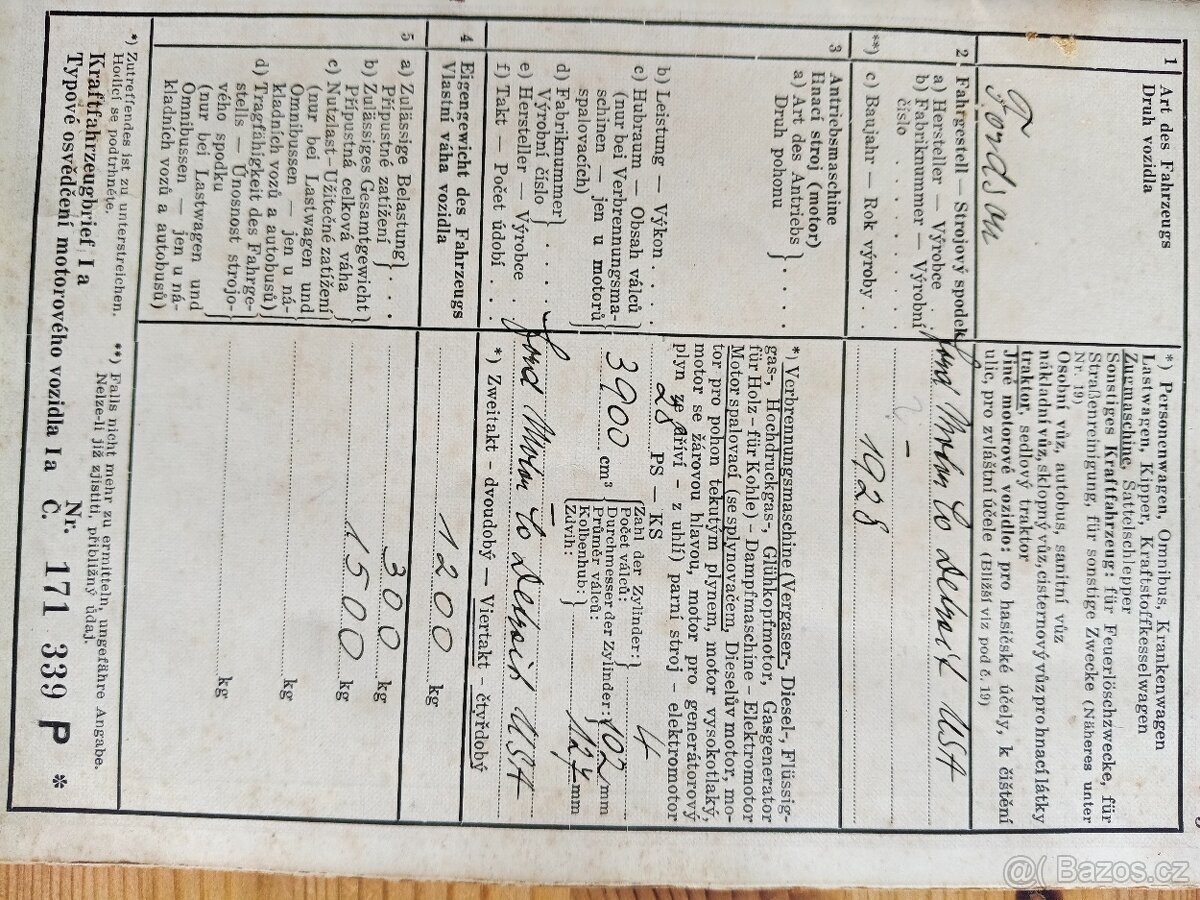 1
Art des Fahrzeugs
Druh vozidla
*) Personenwagen, Omnibus, Krankenwagen
Lastwagen, Kipper, Kraftstoffkesselwagen
Zugmaschine, Sattelschlepper
Sonstiges Kraftfahrzeug: für Feuerlöschzwecke, für
Straßenreinigung, für sonstige Zwecke (Näheres unter
Nr. 19)
Osobní vůz, autobus, sanitní vůz
nákladní vůz, sklopný vůz, cisternový vůz pro hnací látky
traktor, sedlový traktor
Jiné motorové vozidlo: pro hasičské účely, k čištění
ulic, pro zvláštní účele (Bližší viz pod č. 19)
Fordson
2
Fahrgestell — Strojový spodek
a) Hersteller — Výrobce
Ford Motor Co Detroit USA
b) Fabriknummer — Výrobní
číslo
-
**)
c) Baujahr — Rok výroby
1928
3
Antriebsmaschine
Hnací stroj (motor)
a) Art des Antriebs
Druh pohonu
*) Verbrennungsmaschine (Vergaser-, Diesel-, Flüssig-
gas-, Hochdruckgas-, Glühkopfmotor, Gasgenerator
für Holz - für Kohle) - Dampfmaschine - Elektromotor
Motor spalovací (se splynovačem, Dieselův motor, mo-
tor pro pohon tekutým plynem, motor vysokotlaký,
motor se žárovou hlavou, motor pro generátorový
plyn ze dříví - z uhlí) parní stroj - elektromotor
b) Leistung — Výkon
28 PS — KS
c) Hubraum — Obsah válců
(nur bei Verbrennungsma-
schinen — jen u motorů
spalovacích)
3900 cm³
Zahl der Zylinder:
Počet válců:
4
Durchmesser der Zylinder:
Průměr válců:
102 mm
Kolbenhub:
Zdvih:
127 mm
d) Fabriknummer
Výrobní číslo
—
e) Hersteller — Výrobce
Ford Motor Co Detroit USA
f) Takt — Počet údobí
*) Zweitakt - dvoudobý — Viertakt - čtyřdobý
4
Eigengewicht des Fahrzeugs
Vlastní váha vozidla
1200 kg
5
a) Zulässige Belastung
Přípustné zatížení
300 kg
b) Zulässiges Gesamtgewicht
Přípustná celková váha
1500 kg
c) Nutzlast — Užitečné zatížení
(nur bei Lastwagen und
Omnibussen — jen u ná-
kladních vozů a autobusů)
kg
d) Tragfähigkeit des Fahrge-
stells — Únosnost strojo-
vého spodku
(nur bei Lastwagen und
Omnibussen — jen u ná-
kladních vozů a autobusů)
kg
*) Zutreffendes ist zu unterstreichen.
Hodící se podtrhněte.
**) Falls nicht mehr zu ermitteln, ungefähre Angabe.
Nelze-li již zjistiti, přibližný údaj.
Kraftfahrzeugbrief I a
Typové osvědčení motorového vozidla Ia
Nr.
Č.
171 339 P *
Bazos.cz